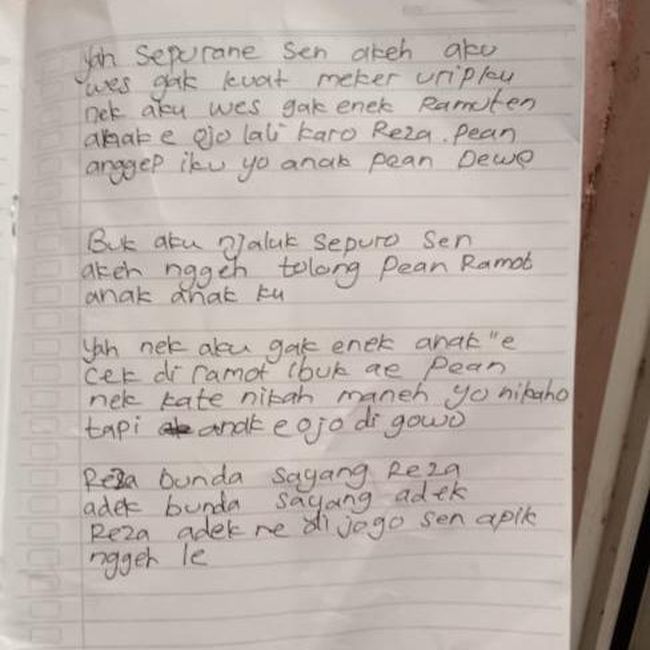 Yah Sepurane Sen akeh aku
wes gak kuat meker uripku
nek aku wes gak enek Ramuten
anak e ojo lali karo Reza. Pean
anggep iku yo anak pean Dewe
Buk aku njaluk sepuro sen
akeh nggeh tolong pean Ramot
anak anak ku
Yah nek aku gak enek anak"e
cek di ramot ibuk ae Pean
nek kate nikah maneh yo nikaho
tapi anak e ojo di gowo
Reza bunda sayang Reza
adek bunda sayang adek
Reza adek ne di jogo sen apik
nggeh le